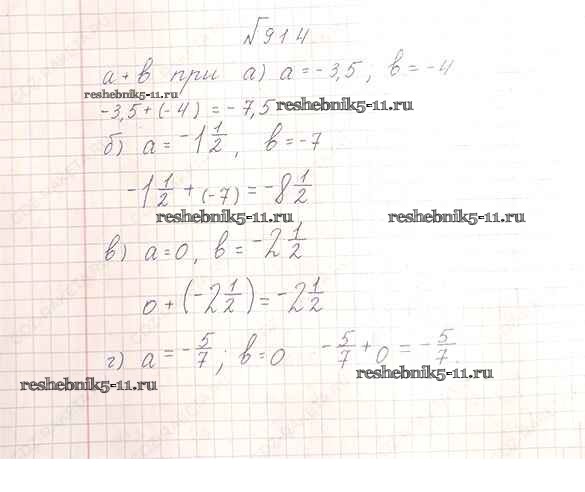 №914
а+в при а) а=-3,5, в=-4
reshebnik5-11.ru
-3,5+(-4)=-7,5 reshebnik5-11.ru
б) а=-1 1/2, в=-7
-1 1/2 + (-7) = -8 1/2
reshebnik5-11.ru reshebnik5-11.ru
в) а=0, в=-2 1/2
0+(-2 1/2)=-2 1/2
г) а=-5/7; в=0 -5/7+0=-5/7.
reshebnik5-11.ru reshebnik5-11.ru